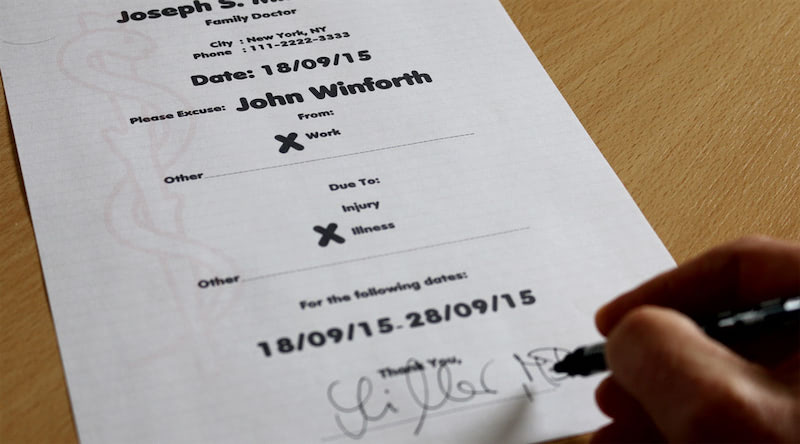 Joseph S.
Family Doctor
City : New York, NY
Phone : 111-2222-3333
Date: 18/09/15
Please Excuse: John Winforth
From:
X Work
Other
Due To:
Injury
X Illness
Other
For the following dates:
18/09/15-28/09/15
Thank You,